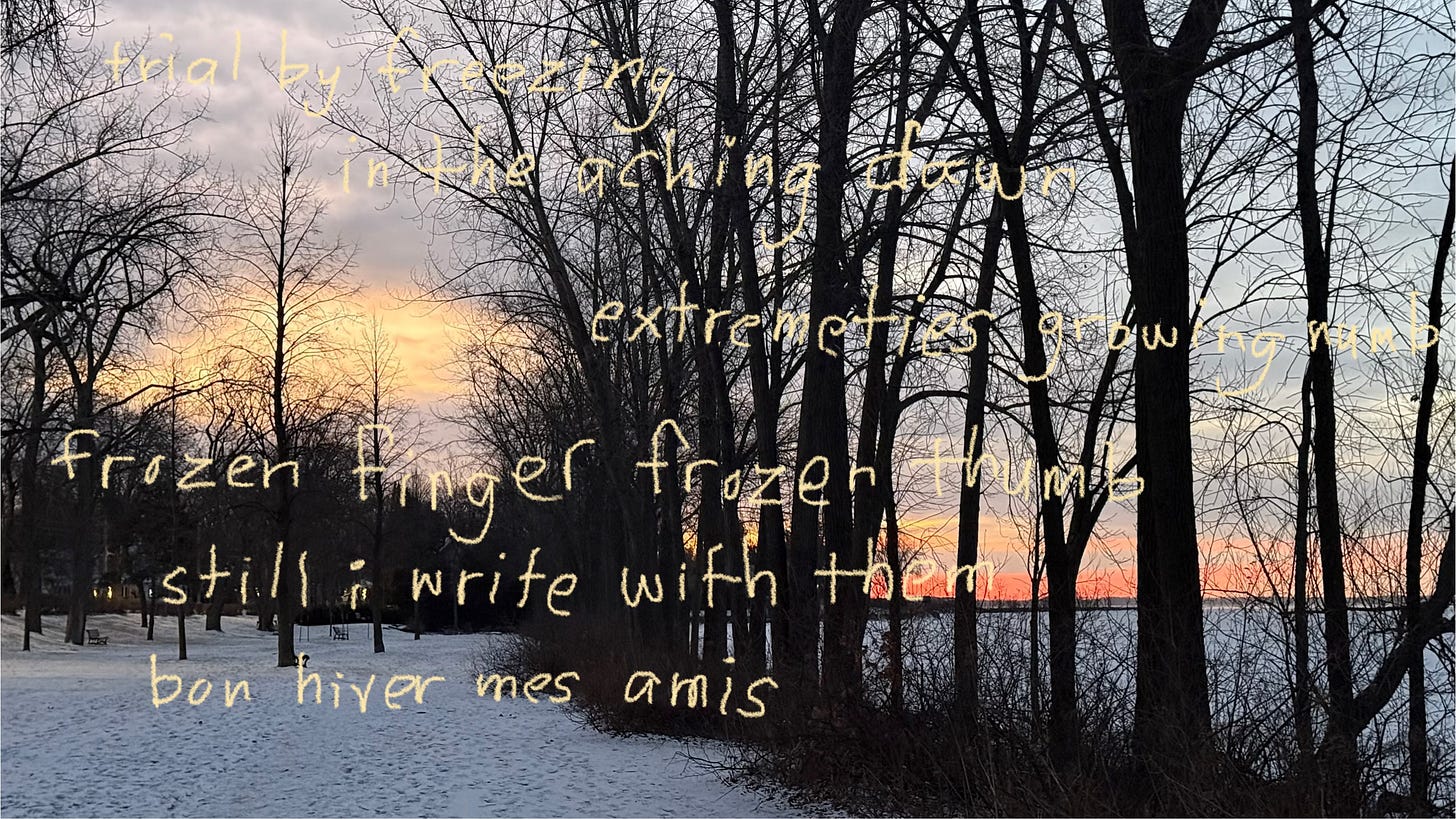 trial by freezing
in the aching dawn
extremeties growing numb
frozen finger frozen thumb
still i write with them
bon hiver mes amis